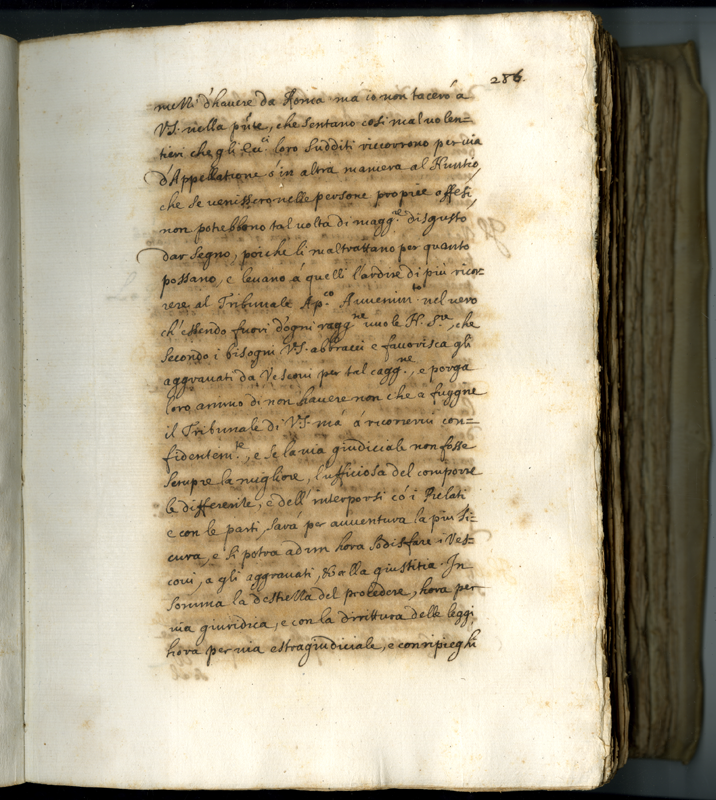 286.
d'havere da Roma mà io non tacerò à
V.S. nella pñte, che sentano così mal volen=
tieri che gli loro sudditi ricorrono per via
d'Appellatione ò in altra maniera al Nuntio
che se venissero nelle persone proprie offesi,
non potrebbono tal volta di magg.re disgusto
dar segno, poiche li maltrattano per quanto
possano, e levano à quelli l'ardire di più ricor=
rere al Tribunale Ap.co Avvenim.to nel vero
ch'essendo fuori d'ogni ragg.ne vuole N. S.re, che
secondo i bisogni V.S. abbracci e favorisca gli
aggravati da Vescovi per tal cagg.ne, e porga
loro animo di non havere non che a fuggire
il Tribunale di V.S. mà à ricorrervi con=
fidentem.te, e se la via giudiciale non fosse
sempre la migliore, l'ufficiosa del comporre
le differenze, e dell'interporsi cò i Prelati
e con le parti, sarà per avventura la più si=
cura, e si potrà ad un hora sodisfare i Ves=
covi, a gli aggravati, & alla giustitia. In
somma la destrezza del procedere, hora per
via giuridica, e con la dirittura delle leggi
hora per via estragiudiciale, e con ripieghi